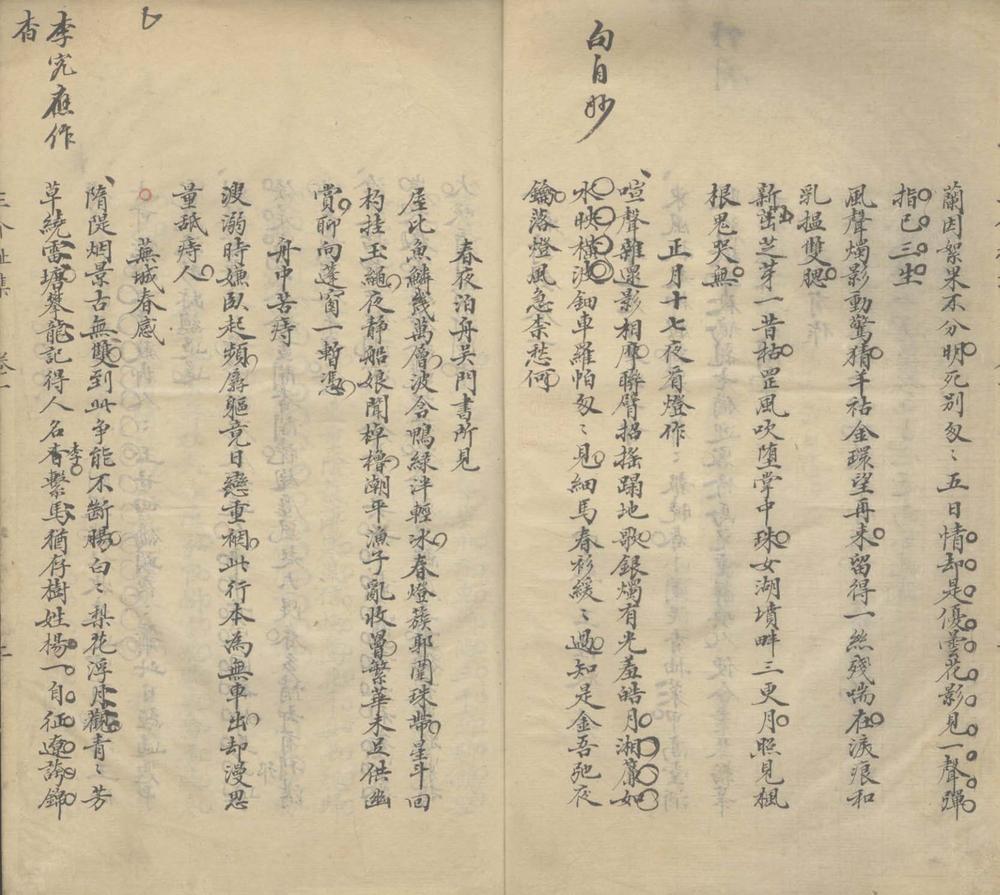 句自妙
蘭因絮果不分明死別匆〻五日情却是優曇花影見一聲彈
指已三生
風聲燭影動驚猜羊祜金環望再來留得一絲殘喘在淚痕和
乳搵雙腮
新茁芝芽一昔枯罡風吹墮掌中珠女湖墳畔三更月照見楓
根鬼哭無
正月十七夜看燈作
喧聲雜遝影相摩聯臂招搖蹋地歌銀燭有光羞皓月湘簾如
水映橫波鈿車羅帕匆〻見細馬春衫緩〻過知是金吾弛夜
鑰落燈風急柰愁何
春夜泊舟吳門書所見
屋比魚鱗幾萬層波含鴨綠泮輕冰春燈簇郭圍珠帶星斗回
杓挂玉繩夜靜船娘閒棹櫓潮平漁子亂收罾繁華未足供幽
賞聊向蓬窗一暫憑
舟中苦痔
溲溺時嫌臥起頻羸軀竟日戀重裀此行本為無車出却漫思
量舐痔人
蕪城春感
隋隄烟景古無雙到此爭能不斷腸白〻梨花浮月觀青〻芳
草繞雷塘攀龍記得人名李繫馬猶存樹姓楊一自征遼誇錦
李
李宄應作
杏